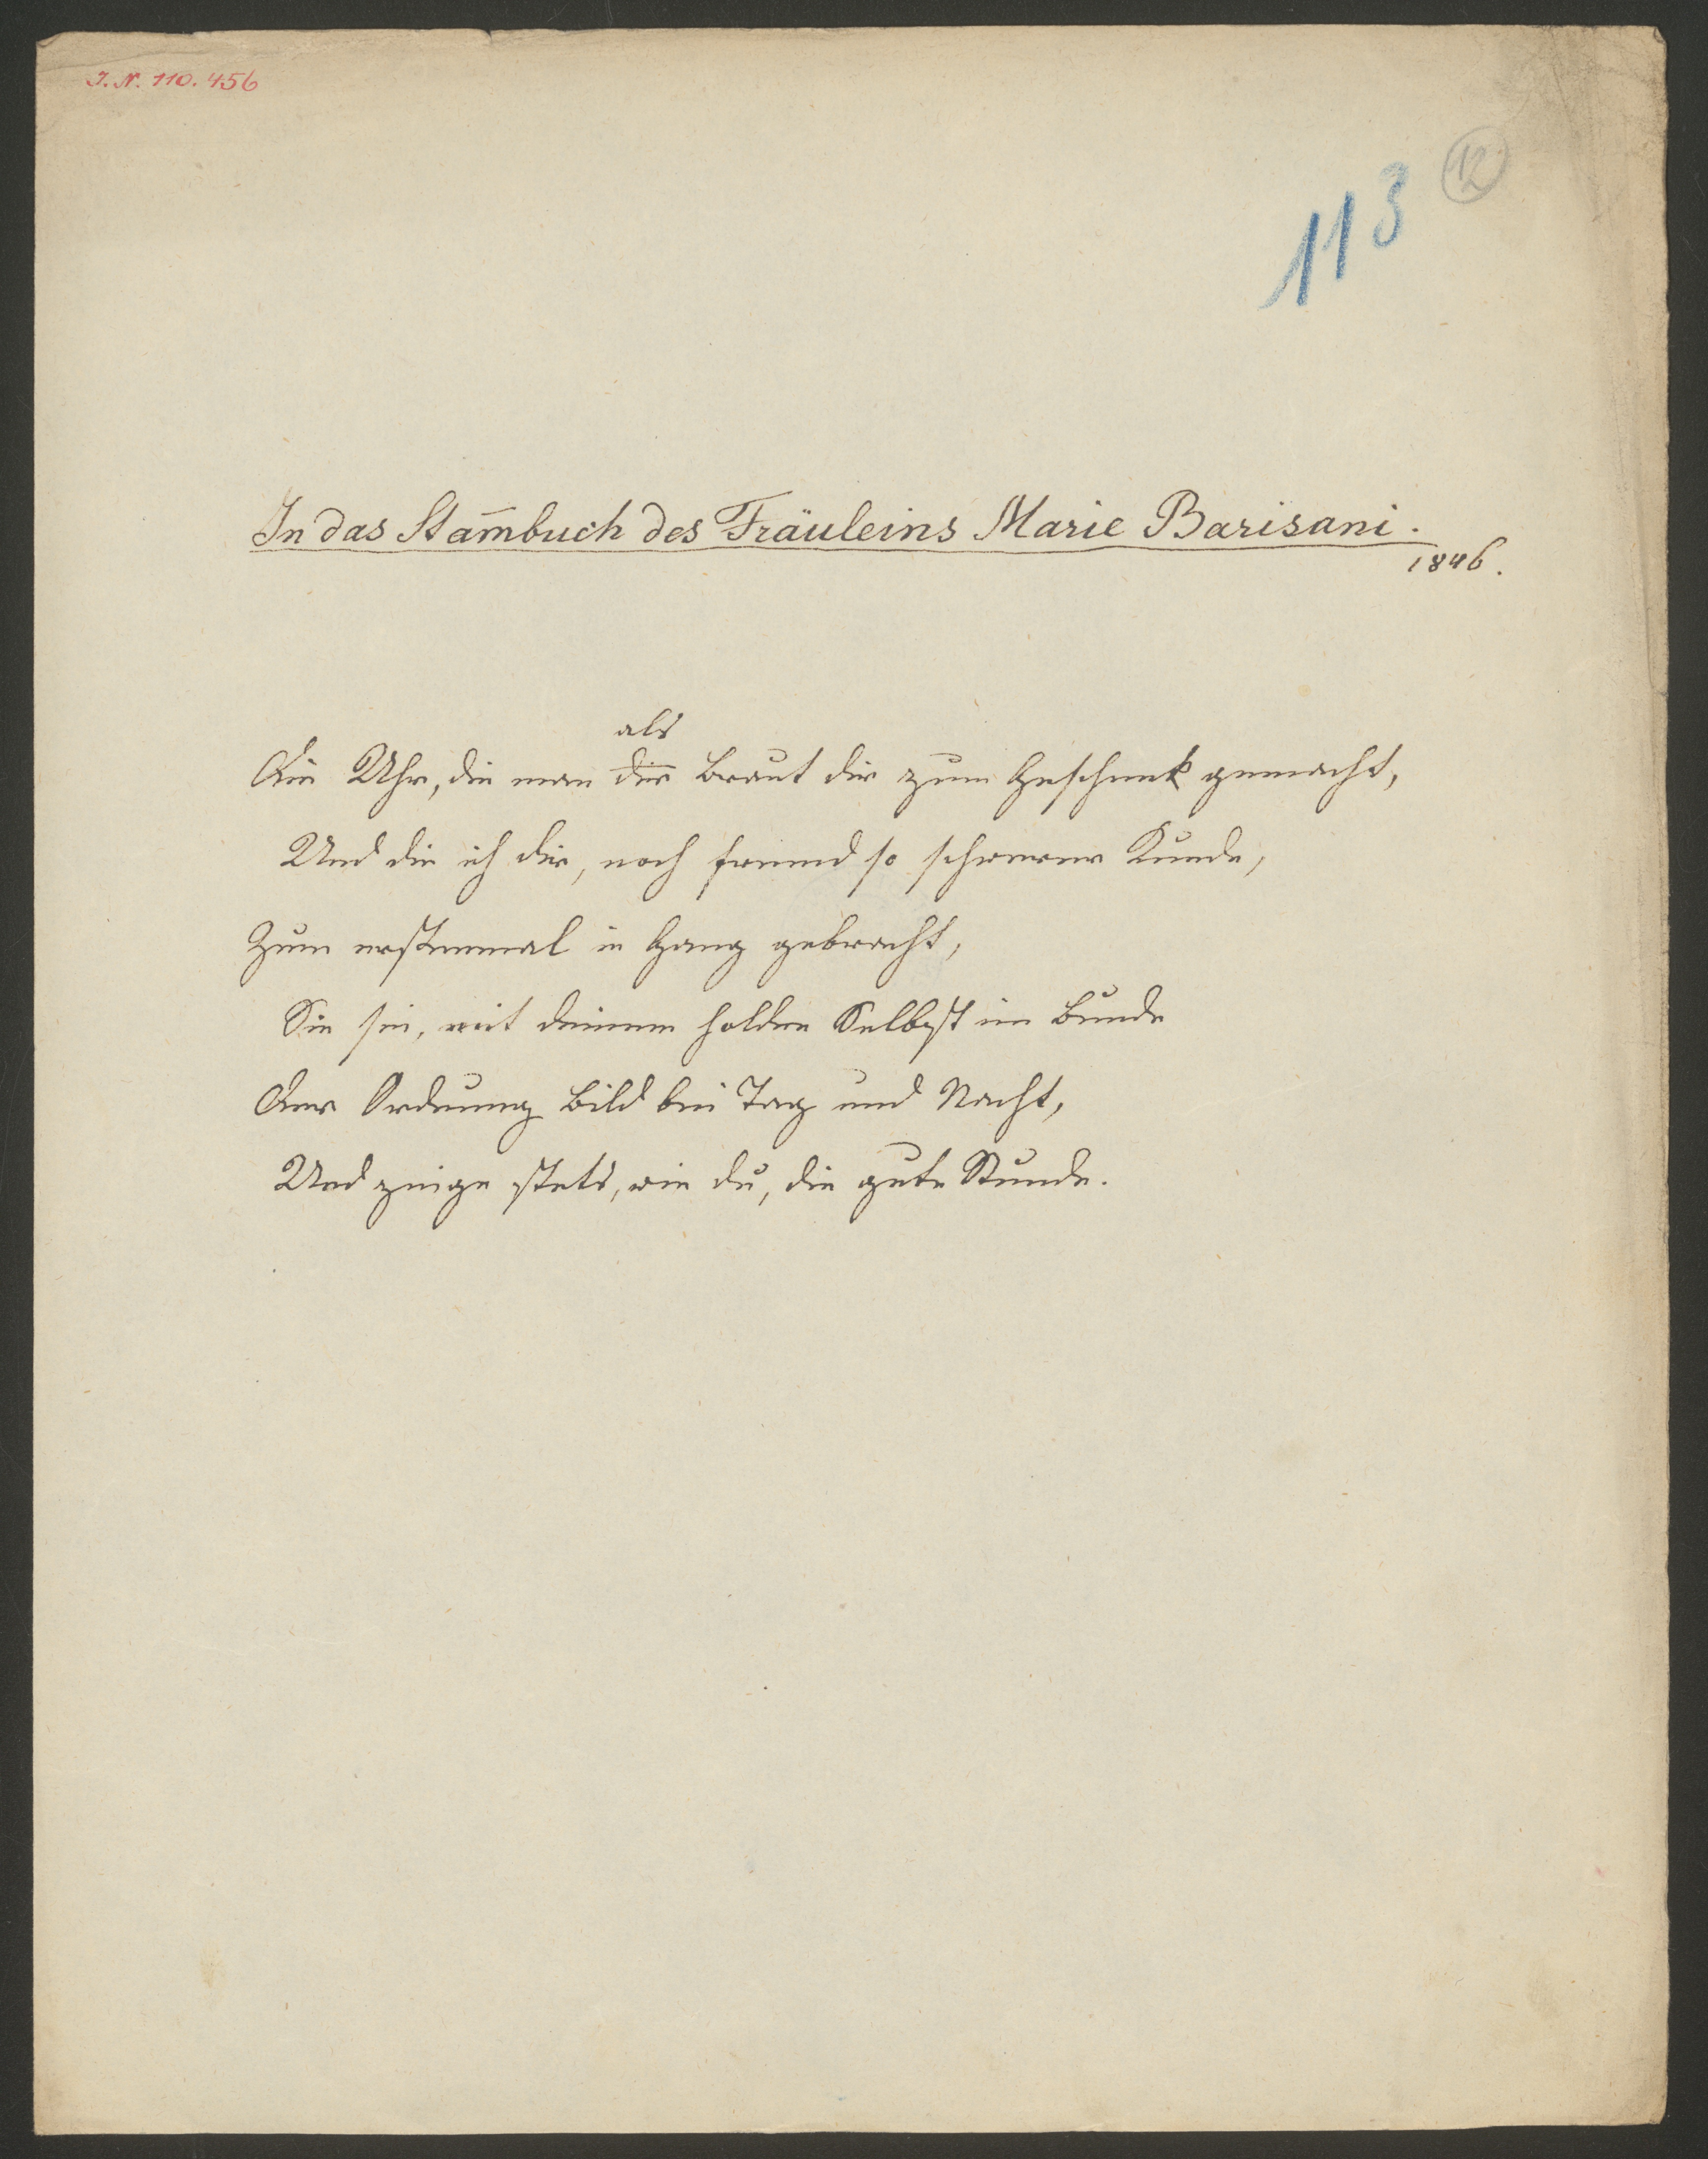 I. N. 110.456
12
113
In das Stam̅buch des Fräuleins Marie Barisani.
1846.
als
Die Uhr, die man dir Braut dir zum Geschenk gemacht,
Und die ich dir, noch fremd so schwerer Kunde,
Zum erstenmal in Gang gebracht,
Sie sei, mit deinem holden Selbst im Bunde
Der Ordnung Bild bei Tag und Nacht,
Und zeige stets, wie du, die gute Stunde.